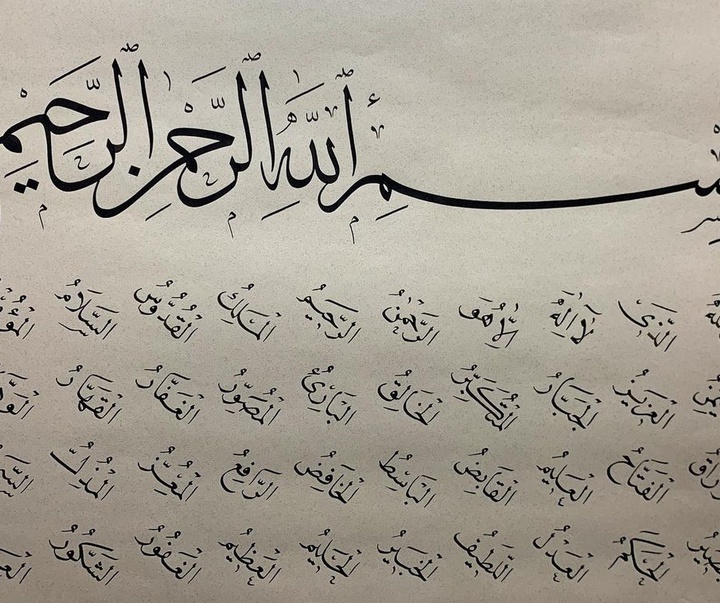 بِسْمِ اللهِ الرَّحْمٰنِ الرَّحِيمِ
الَّذِي لَا إِلٰهَ إِلَّا هُوَ الرَّحْمٰنُ الرَّحِيمُ الْمَلِكُ الْقُدُّوسُ السَّلَامُ
الْعَزِيزُ الْجَبَّارُ الْمُتَكَبِّرُ الْخَالِقُ الْبَارِئُ الْمُصَوِّرُ الْغَفَّارُ الْقَهَّارُ
الْفَتَّاحُ الْعَلِيمُ الْقَابِضُ الْبَاسِطُ الْخَافِضُ الرَّافِعُ الْمُعِزُّ الْمُذِلُّ
الْحَكَمُ الْعَدْلُ اللَّطِيفُ الْخَبِيرُ الْحَلِيمُ الْعَظِيمُ الْغَفُورُ الشَّكُورُ